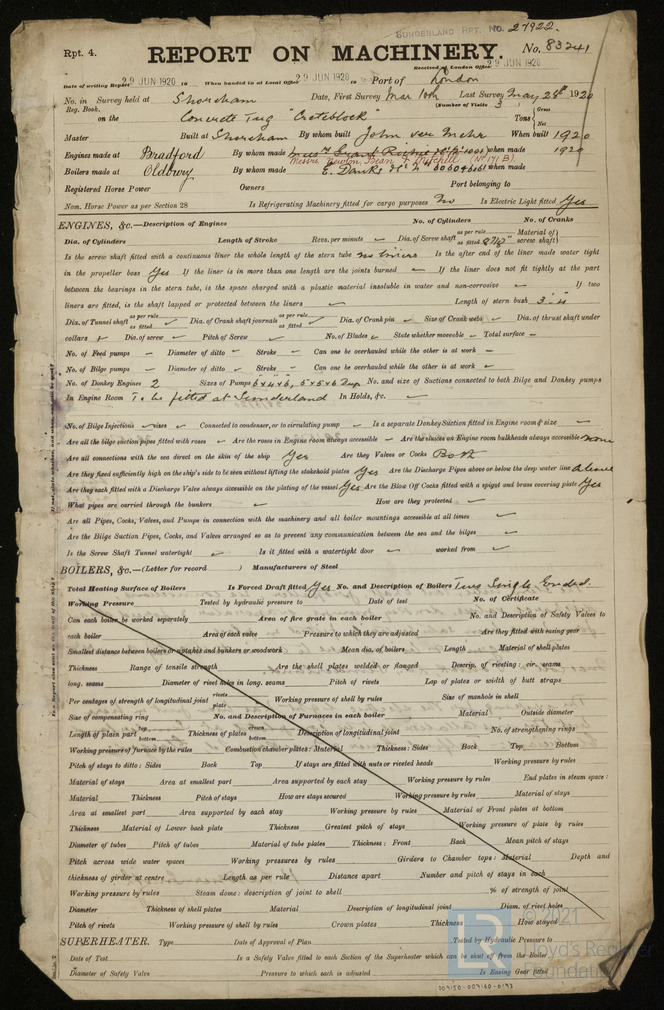 SUNDERLAND RPT. NO. 27922.
Rpt. 4.
REPORT ON MACHINERY.
No. 83241
Received at London Office 29 JUN 1920
Date of writing Report 29 JUN 1920 When handed in at Local Office 29 JUN 1920 Port of London
No. in Survey held at Shoreham Date, First Survey Mar 10th Last Survey May 28th 1920
Reg. Book. (Number of Visits 3)
on the Concrete Tug "Creteblock" Tons Gross Net
Master Built at Shoreham By whom built John ver Mehr When built 1920
Engines made at Bradford By whom made when made 1920
Messrs Newton, Bean & Mitchell (No 171 B).
Boilers made at Oldbury By whom made E. Danks when made
Registered Horse Power Owners Port belonging to
Nom. Horse Power as per Section 28 Is Refrigerating Machinery fitted for cargo purposes No Is Electric Light fitted Yes
ENGINES, &c.—Description of Engines No. of Cylinders No. of Cranks
Dia. of Cylinders Length of Stroke Revs. per minute Dia. of Screw shaft as per rule as fitted 8 7/8" Material of screw shaft
Is the screw shaft fitted with a continuous liner the whole length of the stern tube no liners Is the after end of the liner made water tight
in the propeller boss Yes If the liner is in more than one length are the joints burned If the liner does not fit tightly at the part
between the bearings in the stern tube, is the space charged with a plastic material insoluble in water and non-corrosive If two
liners are fitted, is the shaft lapped or protected between the liners Length of stern bush 3'-4"
Dia. of Tunnel shaft as per rule as fitted Dia. of Crank shaft journals as per rule as fitted Dia. of Crank pin Size of Crank webs Dia. of thrust shaft under
collars Dia. of screw Pitch of Screw No. of Blades State whether moveable Total surface
No. of Feed pumps Diameter of ditto Stroke Can one be overhauled while the other is at work
No. of Bilge pumps Diameter of ditto Stroke Can one be overhauled while the other is at work
No. of Donkey Engines 2 Sizes of Pumps 6 x 4 x 6, 5 x 5 x 6 Dup No. and size of Suctions connected to both Bilge and Donkey pumps
In Engine Room To be fitted at Sunderland In Holds, &c.
No. of Bilge Injections sizes Connected to condenser, or to circulating pump Is a separate Donkey Suction fitted in Engine room & size
Are all the bilge suction pipes fitted with roses Are the roses in Engine room always accessible Are the sluices on Engine room bulkheads always accessible none
Are all connections with the sea direct on the skin of the ship Yes Are they Valves or Cocks Both
Are they fixed sufficiently high on the ship's side to be seen without lifting the stokehold plates Yes Are the Discharge Pipes above or below the deep water line Above
Are they each fitted with a Discharge Valve always accessible on the plating of the vessel Yes Are the Blow Off Cocks fitted with a spigot and brass covering plate Yes
What pipes are carried through the bunkers How are they protected
Are all Pipes, Cocks, Valves, and Pumps in connection with the machinery and all boiler mountings accessible at all times
Are the Bilge Suction Pipes, Cocks, and Valves arranged so as to prevent any communication between the sea and the bilges
Is the Screw Shaft Tunnel watertight Is it fitted with a watertight door worked from
BOILERS, &c.—(Letter for record ) Manufacturers of Steel
Total Heating Surface of Boilers Is Forced Draft fitted Yes No. and Description of Boilers Two Single Ended.
Working Pressure Tested by hydraulic pressure to Date of test No. of Certificate
Can each boiler be worked separately Area of fire grate in each boiler No. and Description of Safety Valves to
each boiler Area of each valve Pressure to which they are adjusted Are they fitted with easing gear
Smallest distance between boilers or uptakes and bunkers or woodwork Mean dia. of boilers Length Material of shell plates
Thickness Range of tensile strength Are the shell plates welded or flanged Descrip. of riveting: cir. seams
long. seams Diameter of rivet holes in long. seams Pitch of rivets Lap of plates or width of butt straps
Per centages of strength of longitudinal joint rivets plate Working pressure of shell by rules Size of manhole in shell
Size of compensating ring No. and Description of Furnaces in each boiler Material Outside diameter
Length of plain part top bottom Thickness of plates crown bottom Description of longitudinal joint No. of strengthening rings
Working pressure of furnace by the rules Combustion chamber plates: Material Thickness: Sides Back Top Bottom
Pitch of stays to ditto: Sides Back Top If stays are fitted with nuts or riveted heads Working pressure by rules
Material of stays Area at smallest part Area supported by each stay Working pressure by rules End plates in steam space:
Material Thickness Pitch of stays How are stays secured Working pressure by rules Material of stays
Area at smallest part Area supported by each stay Working pressure by rules Material of Front plates at bottom
Thickness Material of Lower back plate Thickness Greatest pitch of stays Working pressure of plate by rules
Diameter of tubes Pitch of tubes Material of tube plates Thickness: Front Back Mean pitch of stays
Pitch across wide water spaces Working pressures by rules Girders to Chamber tops: Material Depth and
thickness of girder at centre Length as per rule Distance apart Number and pitch of stays in each
Working pressure by rules Steam dome: description of joint to shell % of strength of joint
Diameter Thickness of shell plates Material Description of longitudinal joint Diam. of rivet holes
Pitch of rivets Working pressure of shell by rules Crown plates Thickness How stayed
SUPERHEATER. Type Date of Approval of Plan Tested by Hydraulic Pressure to
Date of Test Is a Safety Valve fitted to each Section of the Superheater which can be shut off from the Boiler
Diameter of Safety Valve Pressure to which each is adjusted Is Easing Gear fitted
© 2021
Lloyd's Register
Foundation
009150-009160-0193